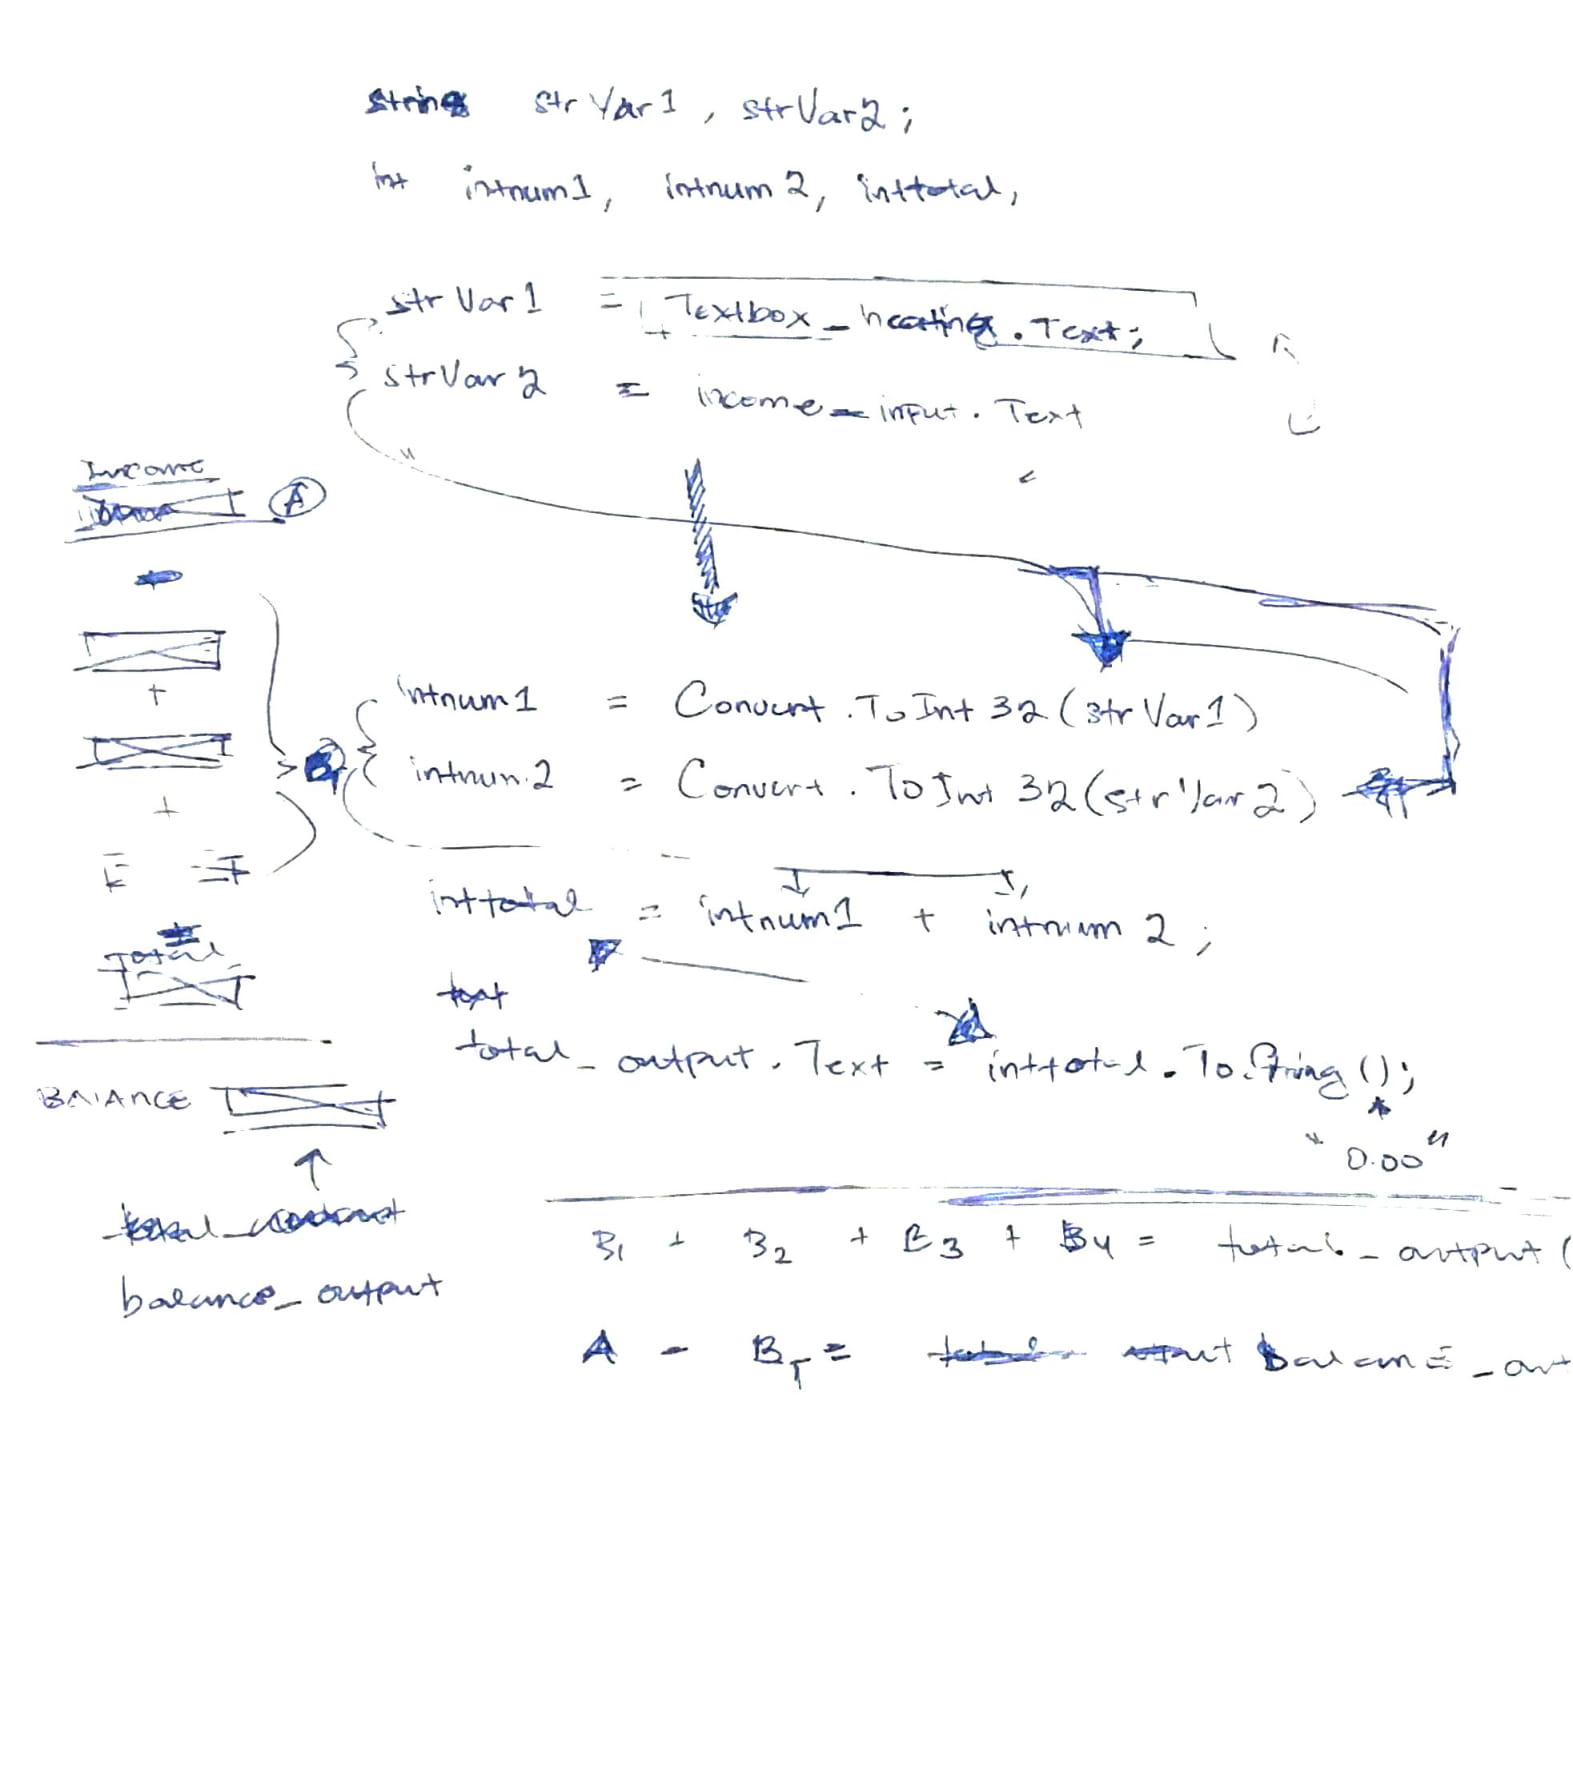 string strVar1, strVar2;
int intnum1, intnum2, inttotal,
strVar1 = Textbox_heating.Text;
strVar2 = income_input.Text
Income
A
+
+
intnum1 = Convert.ToInt32(strVar1)
intnum2 = Convert.ToInt32(strVar2)
B
inttotal = intnum1 + intnum2;
Total
total_output.Text = inttotal.ToString();
"0.00"
BALANCE
balance_output
B1 + B2 + B3 + B4 = total_output(
A - BT = balance_out